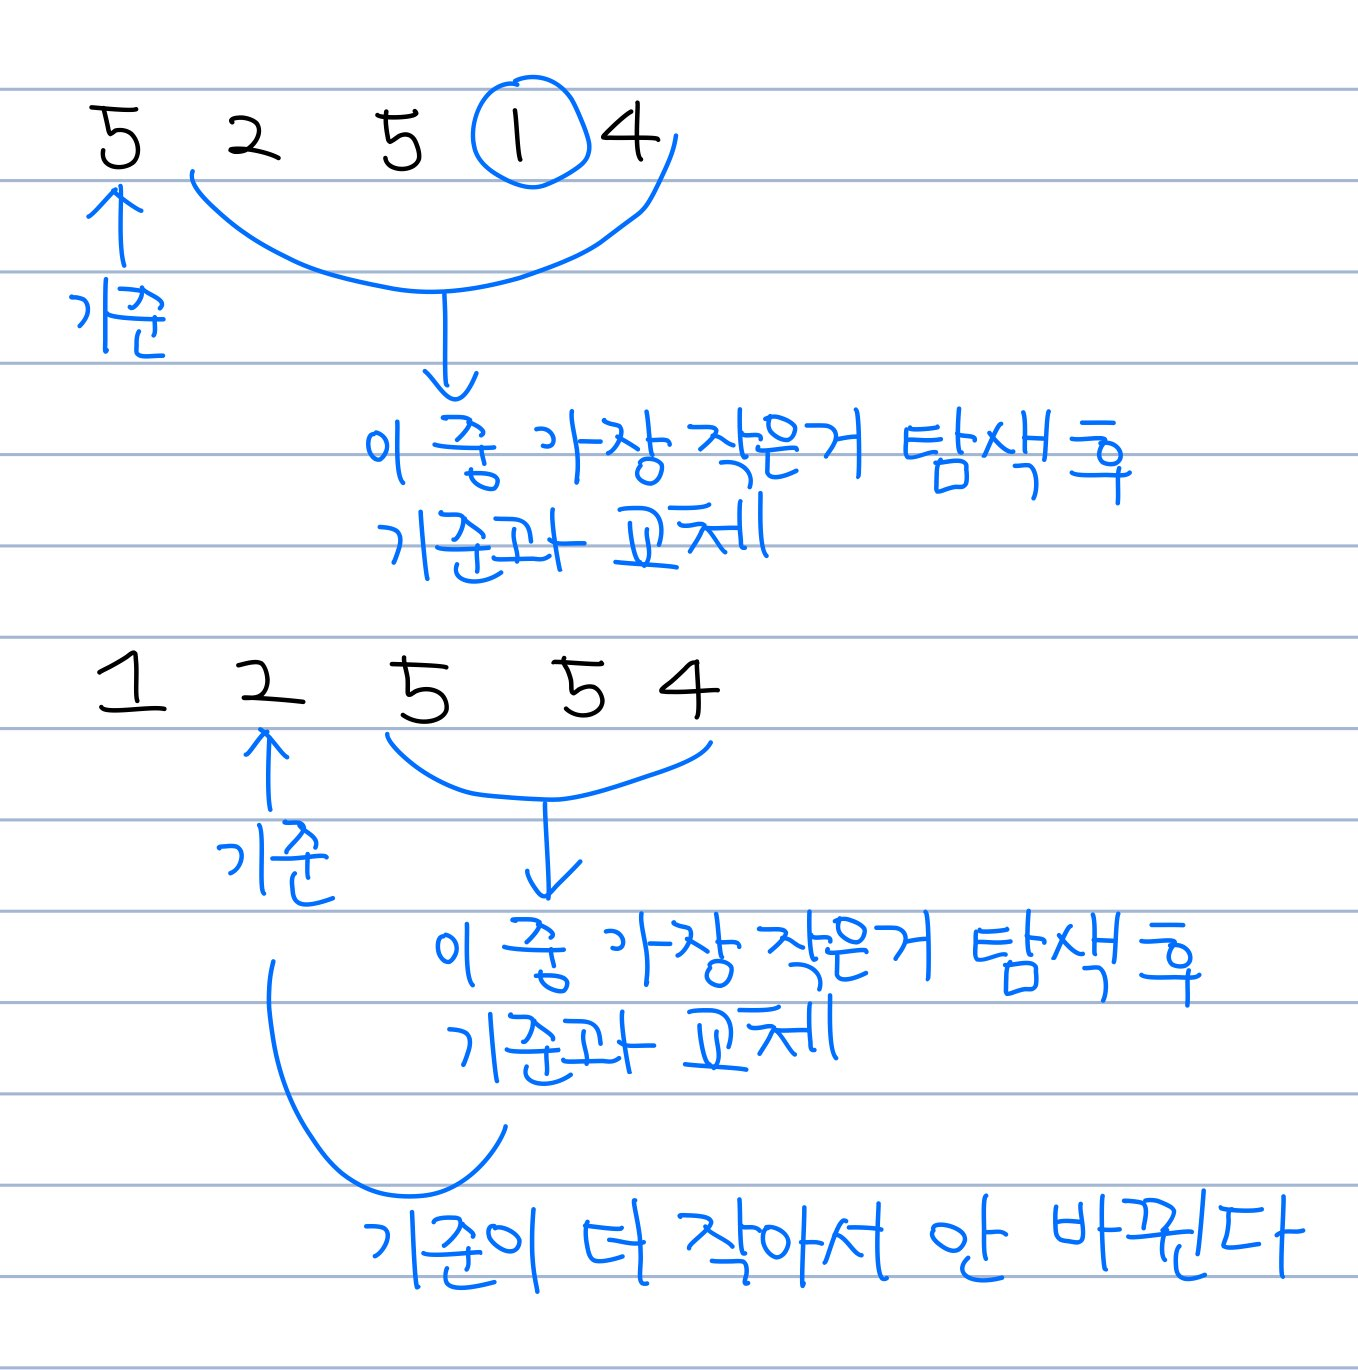 5 2 5 1 4
기준
이 중 가장 작은거 탐색 후
기준과 교체
1 2 5 5 4
기준
이 중 가장 작은거 탐색 후
기준과 교체
기준이 더 작아서 안 바뀐다